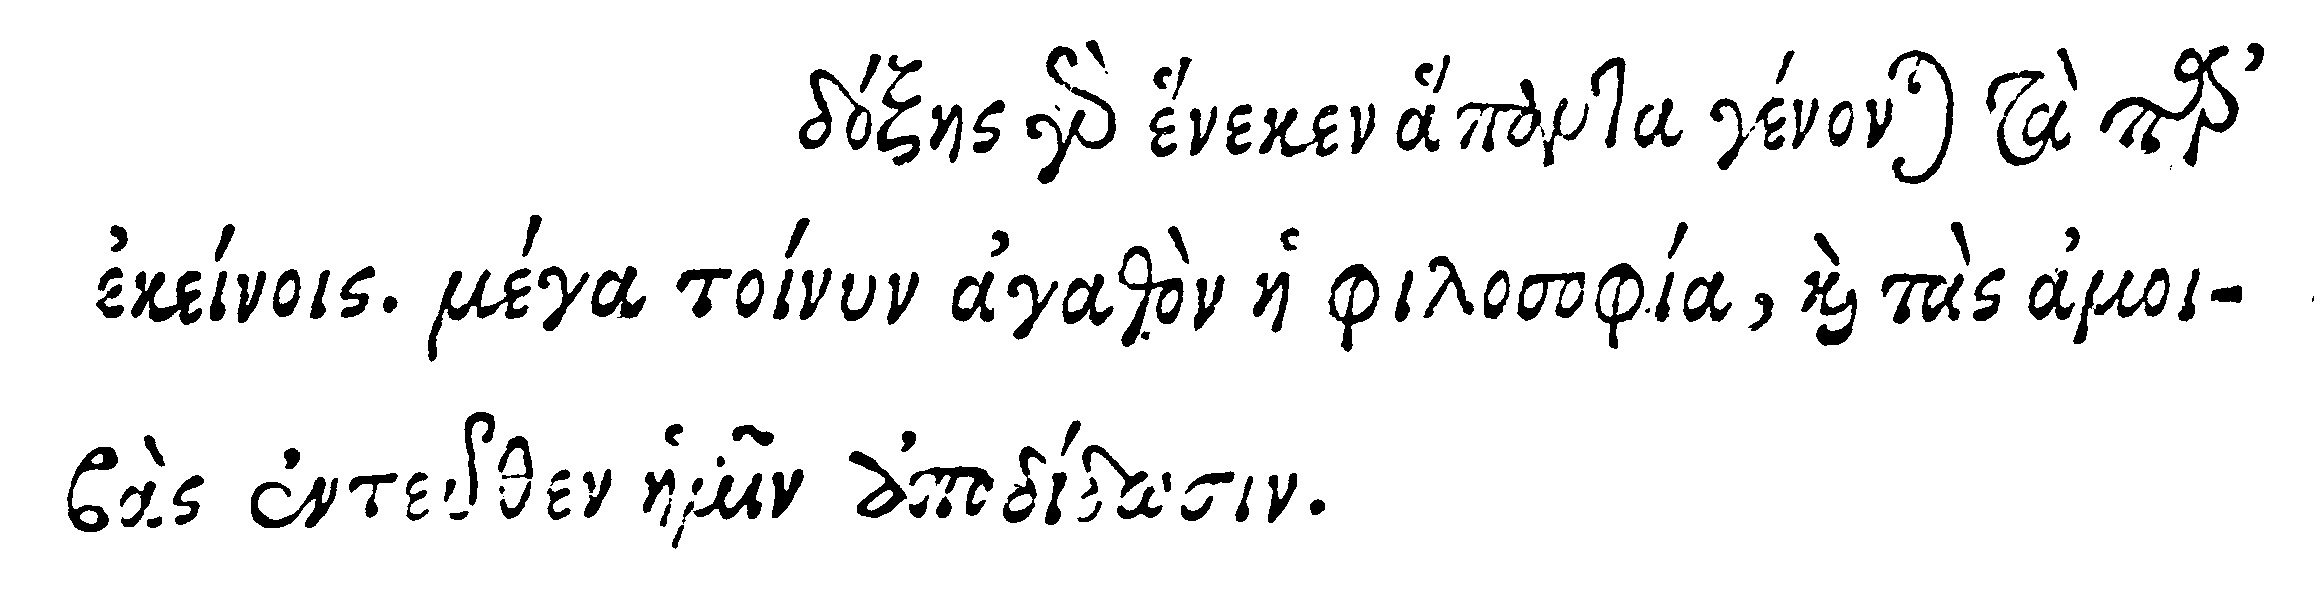 δόξης γὰρ ἕνεκεν ἅπαντα γένονται τὰ παρ’
ἐκείνοις. μέγα τοίνυν ἀγαθὸν ἡ φιλοσοφία, καὶ τὰς ἀμοι-
βὰς ἐντεῦθεν ἡμῖν ἀποδίδωσιν.